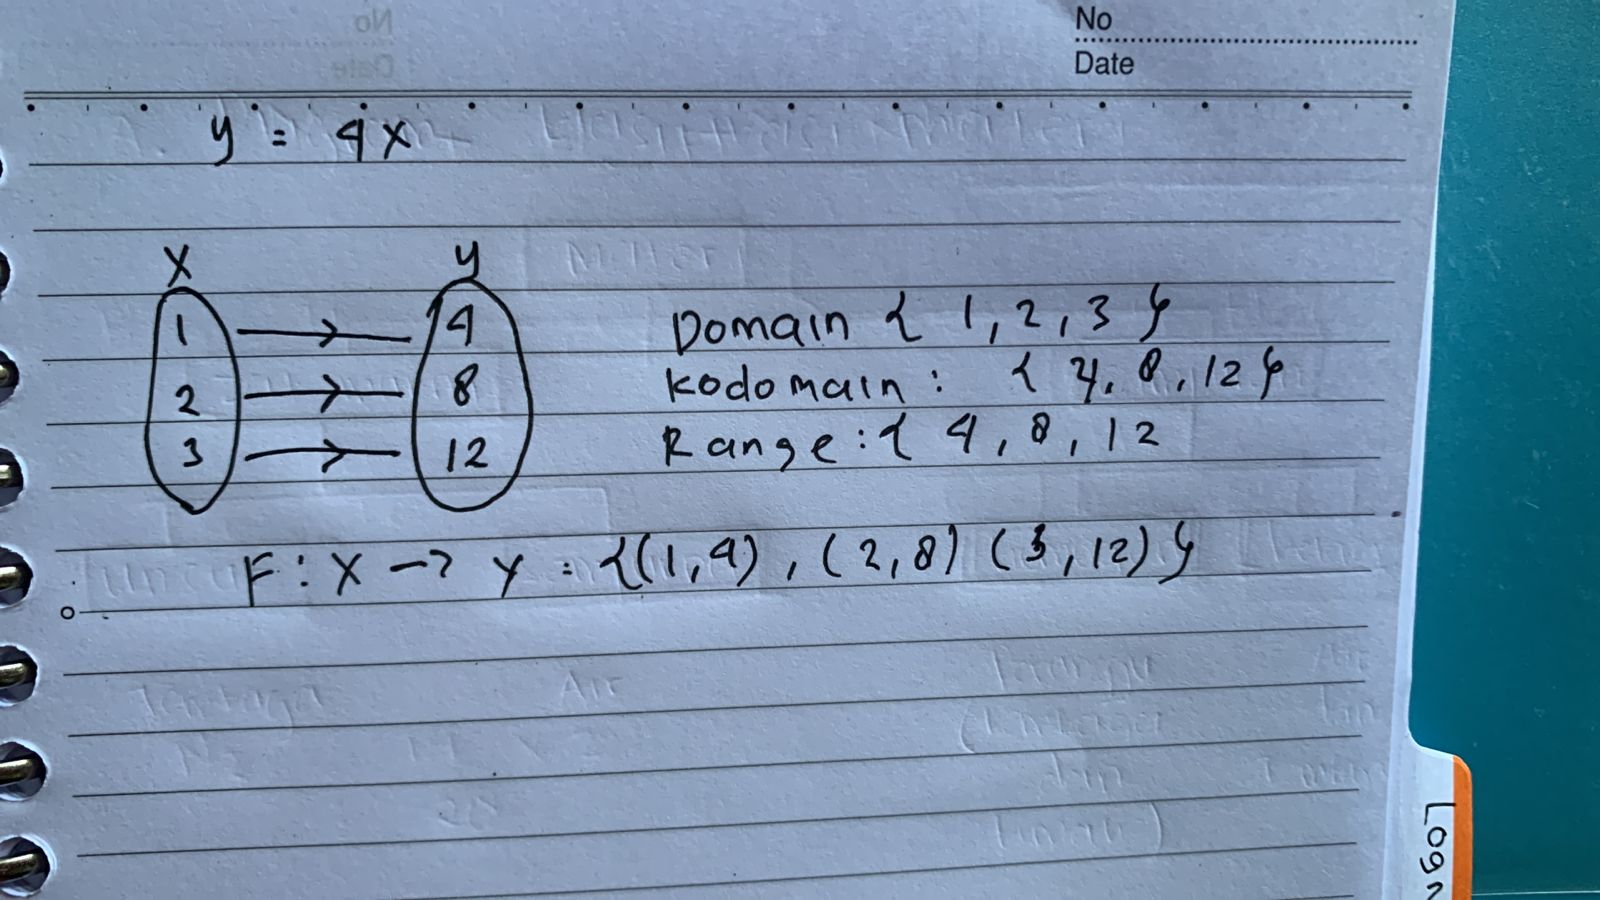 No
Date
y = 4x
x y
1 4
2 8
3 12
Domain { 1, 2, 3 }
Kodomain : { 4, 8, 12 }
Range : { 4, 8, 12
F : x → y = {(1,4), (2,8) (3,12)}
Miller
Air
Log